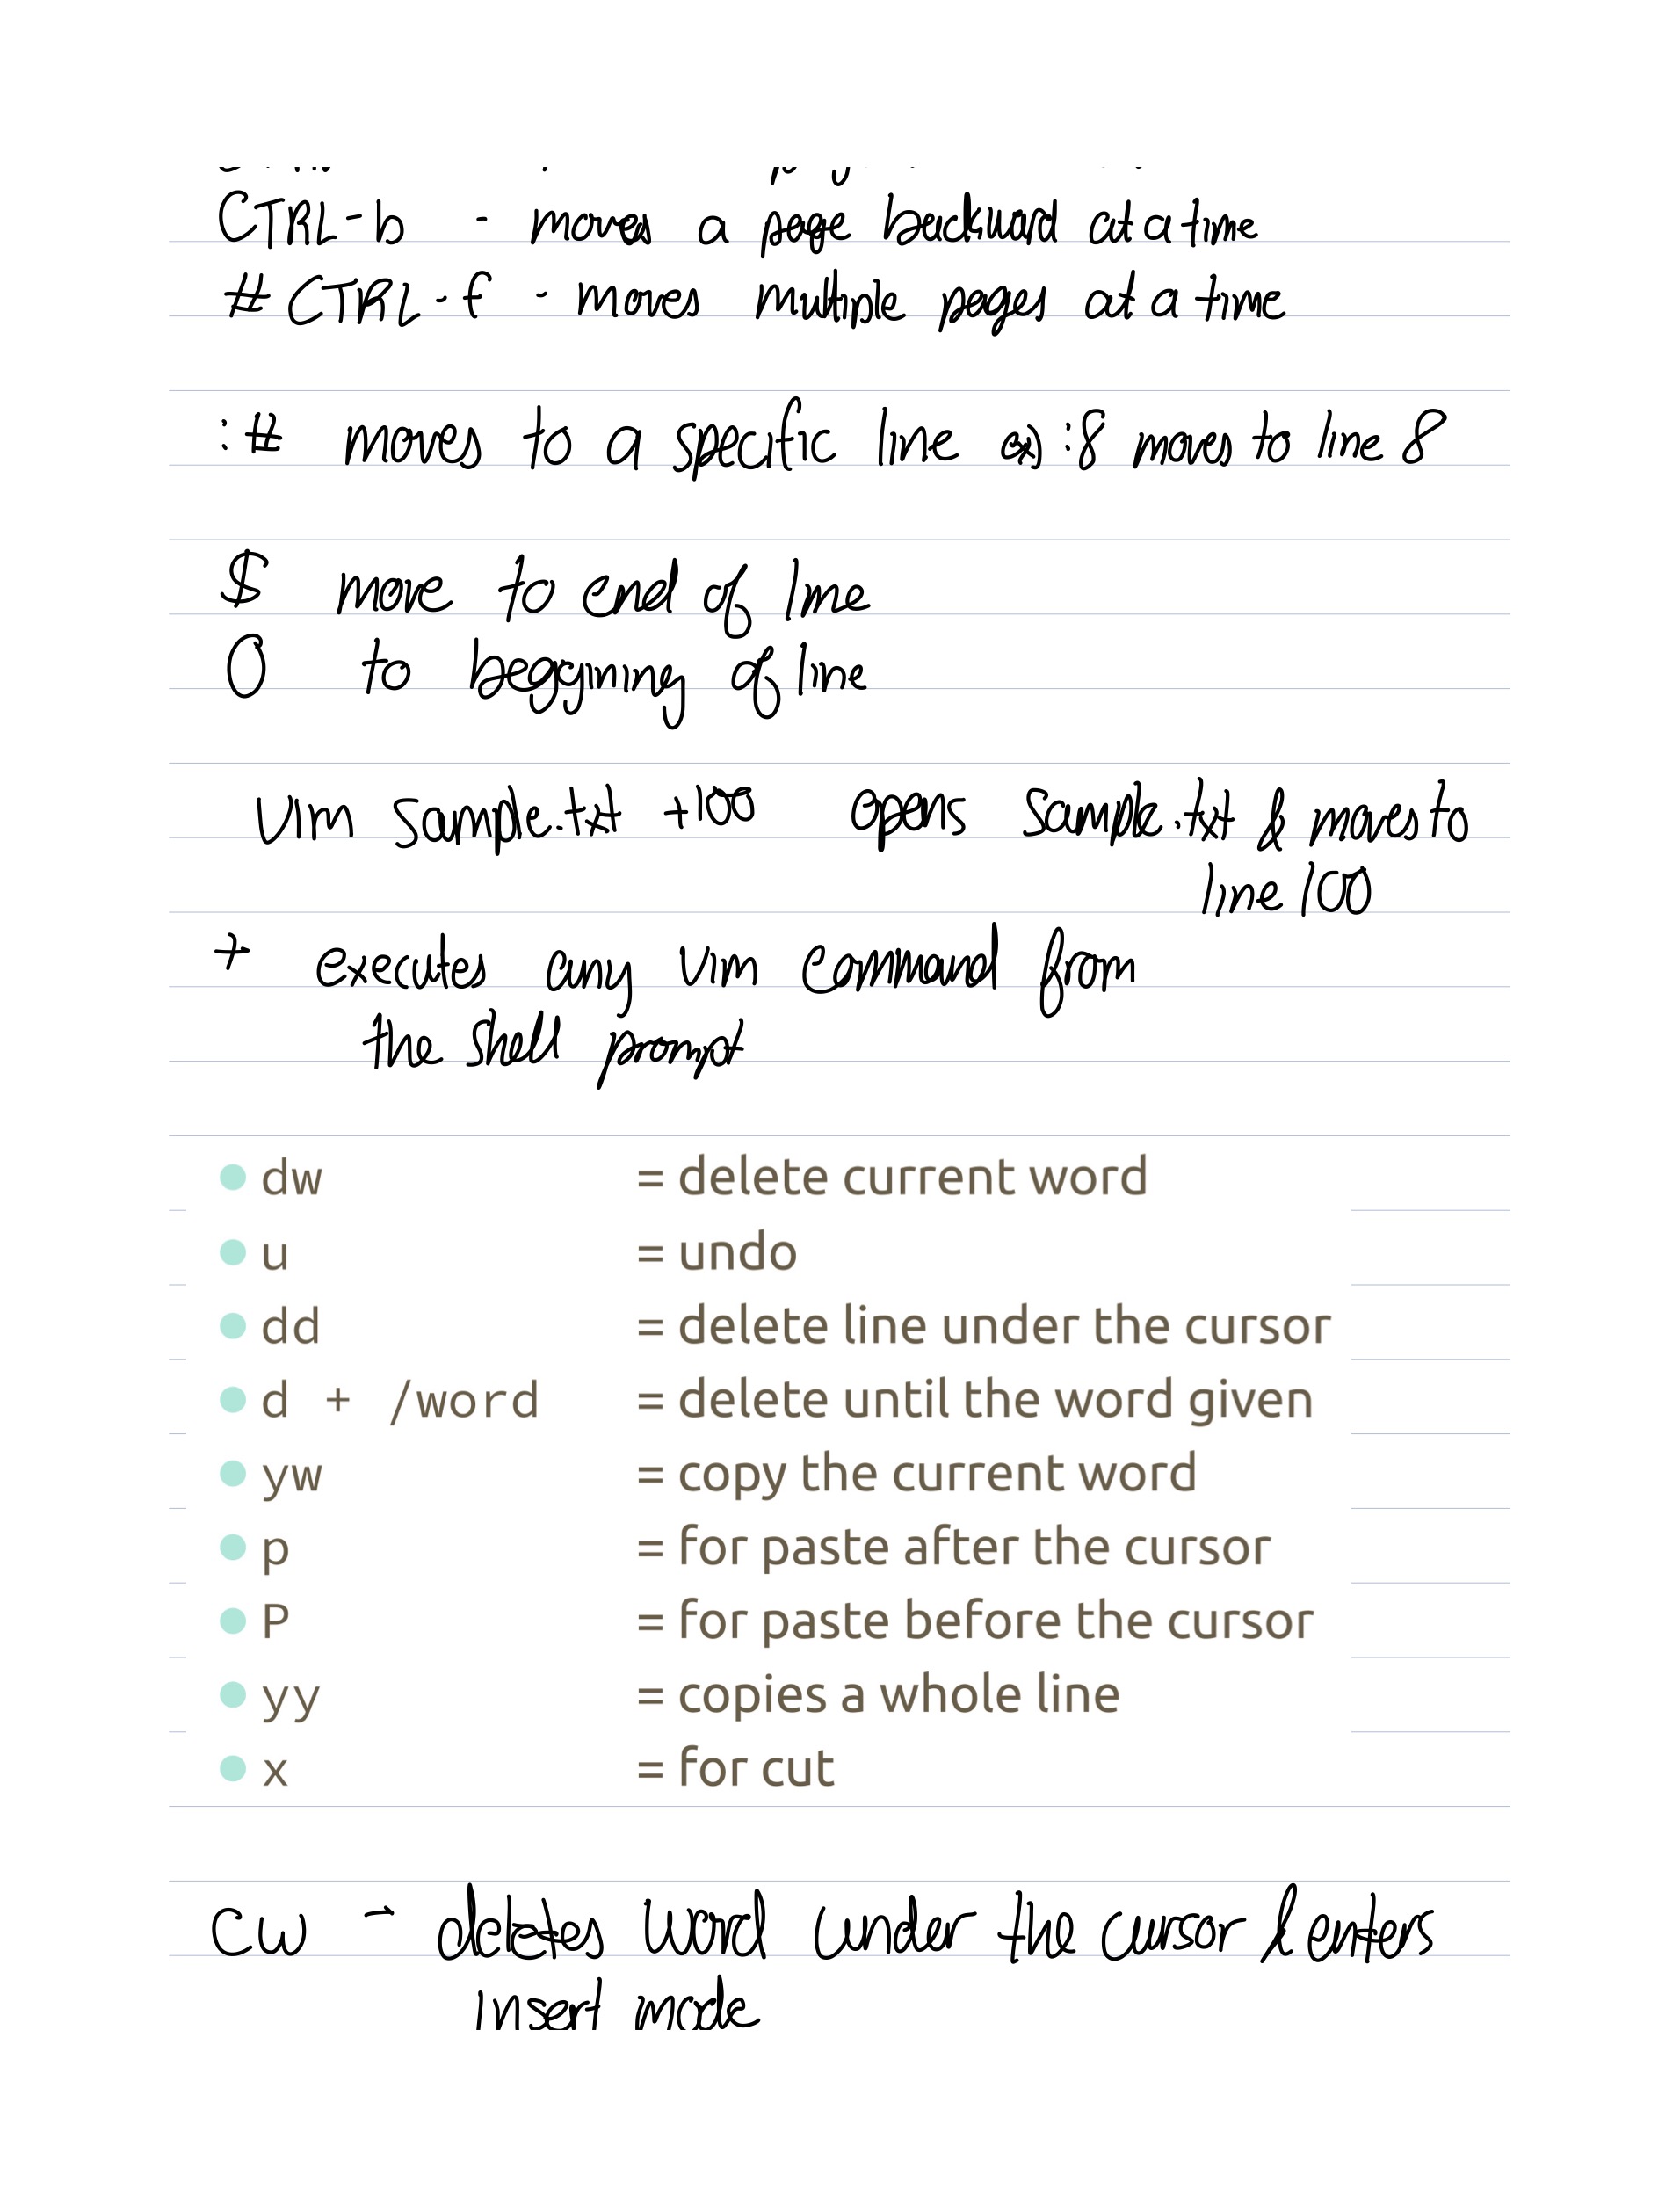 CTRL-b - moves a page backward at a time
#CTRL-f - moves multiple pages at a time
:# moves to a specific line ex) :8 moves to line 8
$ move to end of line
0 to beggining of line
vim sample.txt +100 opens sample.txt & moves to
line 100
+ executes any vim command from
the shell prompt
dw = delete current word
u = undo
dd = delete line under the cursor
d + /word = delete until the word given
yw = copy the current word
p = for paste after the cursor
P = for paste before the cursor
yy = copies a whole line
x = for cut
cw - deletes word under the cursor & enters
insert mode